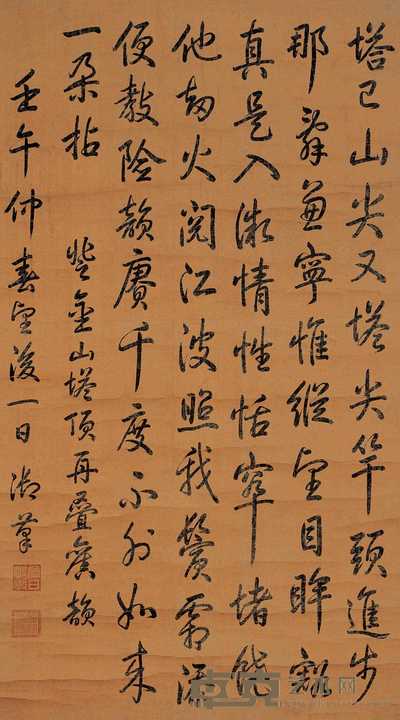 塔已山尖又塔尖竿頭進步
那辭兼寧惟縱望目眸豁
真是入微情性恬窣堵
他劫火閱江波照我鬢霜添
便教險韻賡千度不外如來
一朵拈 登金山塔頂再疊舊韻
壬午仲春望後一日御筆